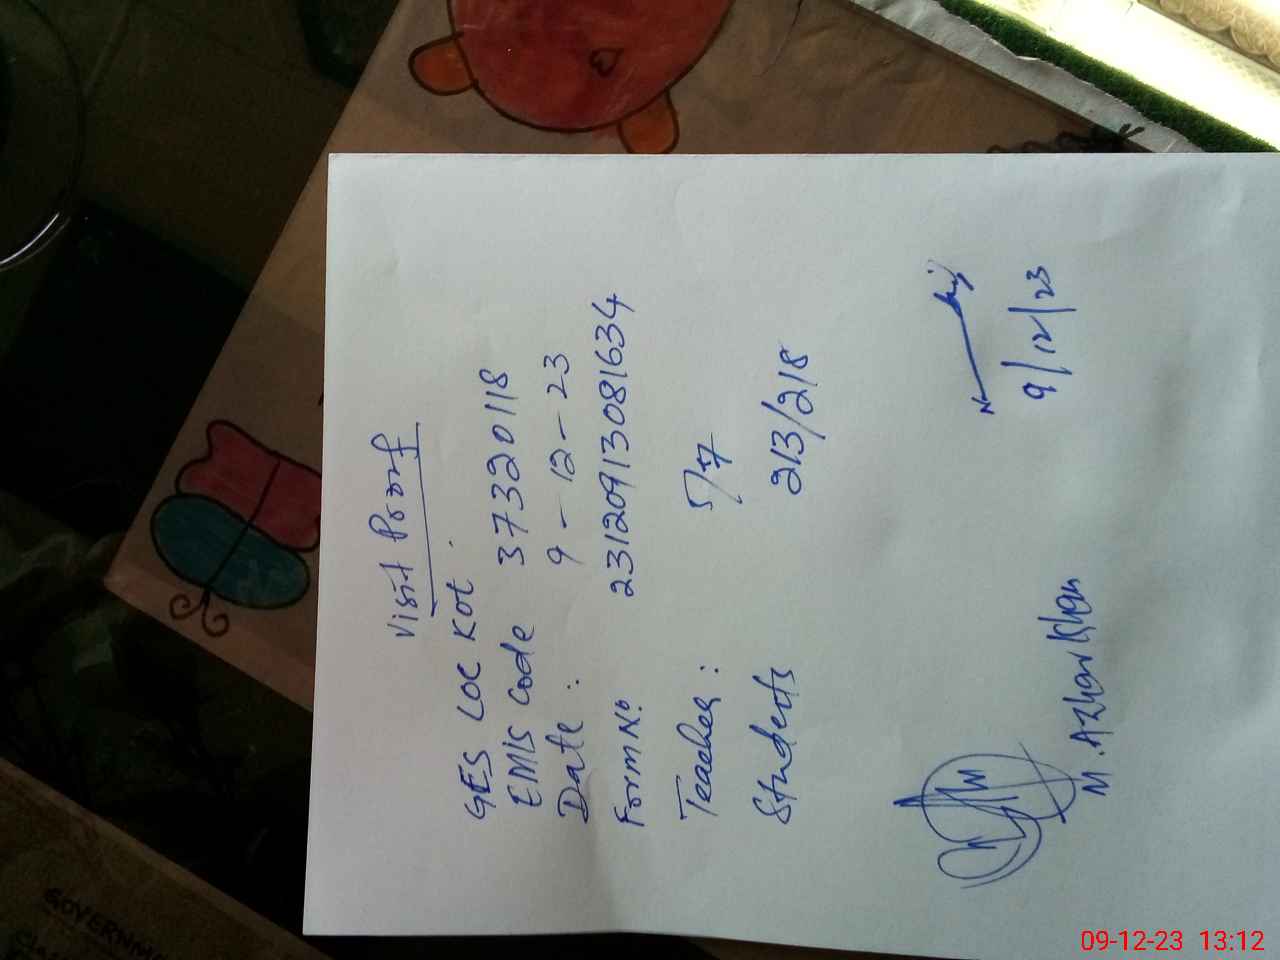 Visit Proof
GES LOC KOT.
EMIS Code 37320118
Date: 9-12-23
Form No. 23120913081634
Teacher: 5/7
Students 213/218
9/12/23
M. Azhar Khan
GOVERNM
09-12-23 13:12